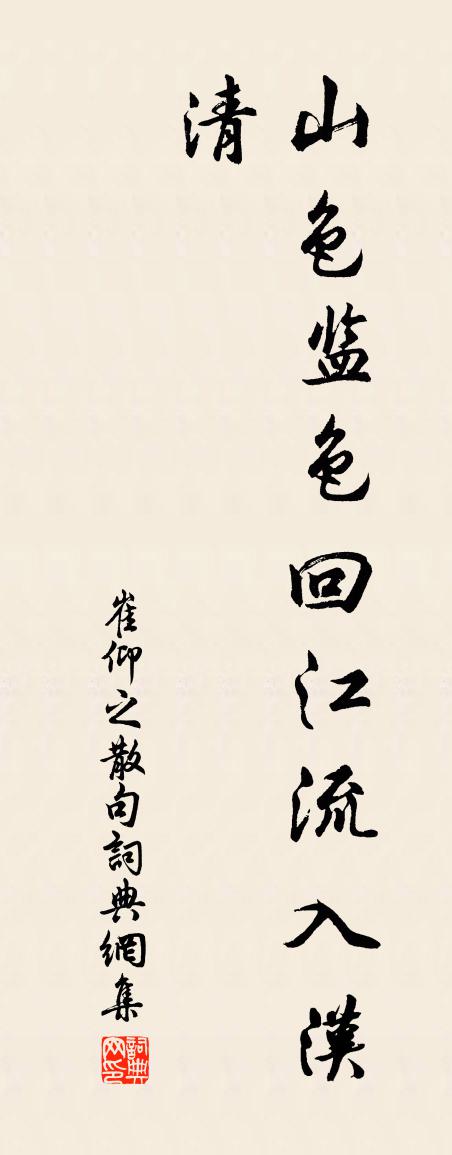 山色监色回江流入漢
清
崔仰之散句詞典網集
詞典网印